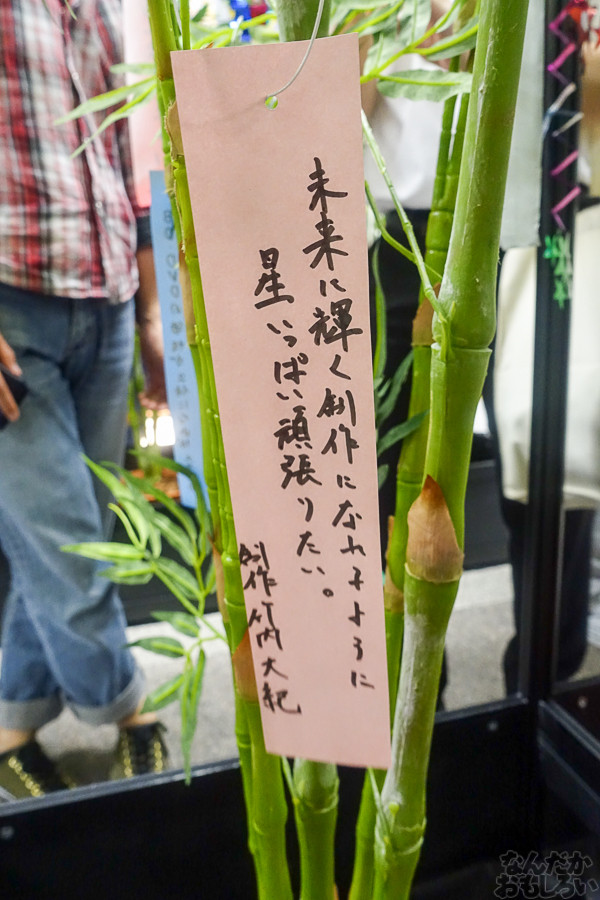 未来に輝く創作になれるように
星いっぱい頑張りたい。
創作 竹内大紀
なんだか
おもしろい